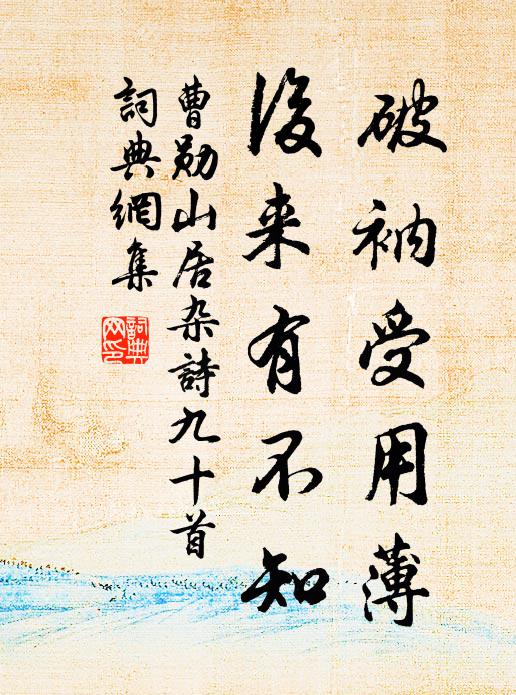 破衲受用薄
後来有不知
曹勋山居杂詩九十首
詞典網集
詞典
网印